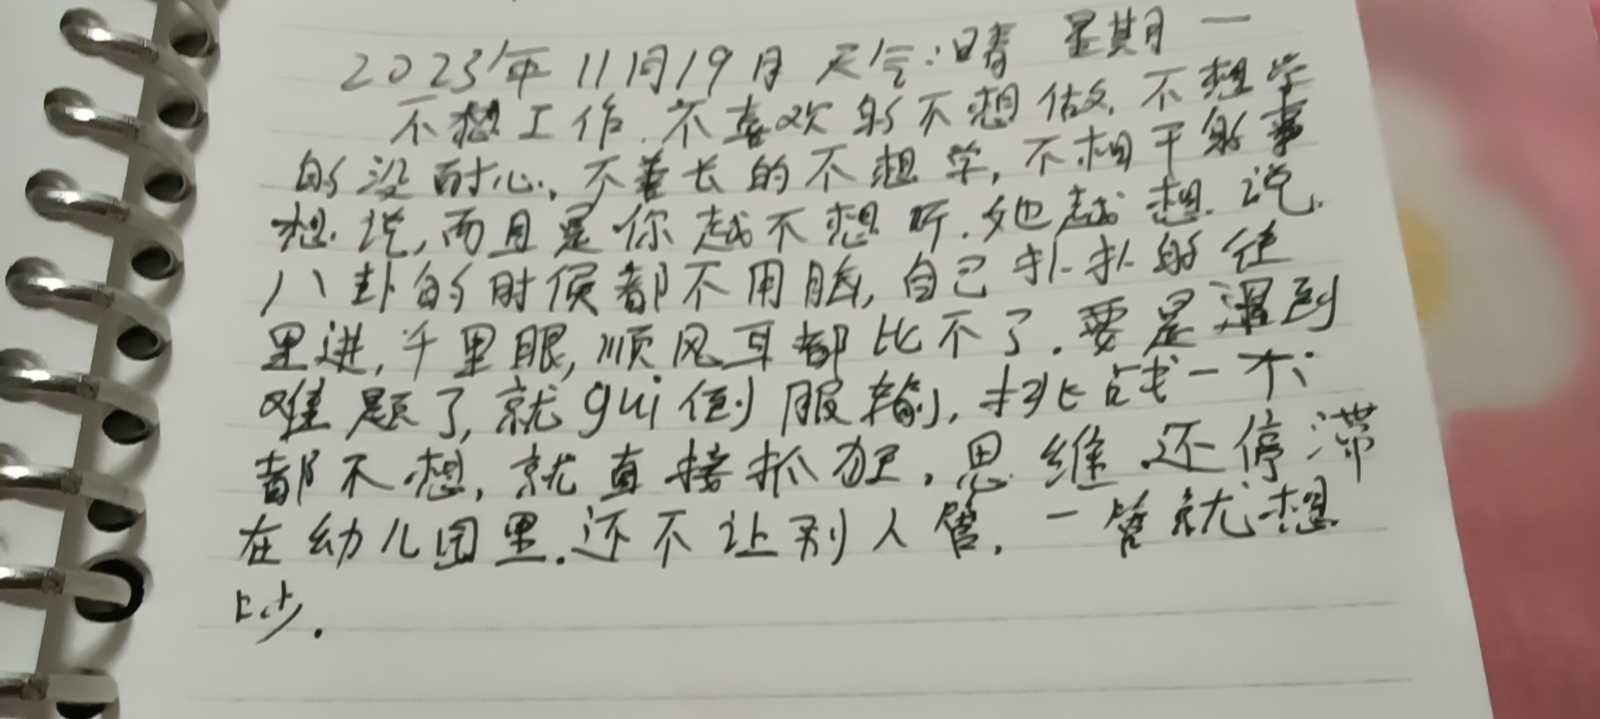 2023年11月19月 天气:晴 星期一
不想工作.不喜欢的不想做.不想学
的没耐心.不善长的不想学,不相干的事
想说,而且是你越不想听.她越想说.
八卦的时候都不用脑,自己扑扑的往
里进,千里眼,顺风耳都比不了.要是遇到
难题了,就gui倒服输,挑战一下
都不想,就直接抓狂.思维还停滞
在幼儿园里.还不让别人管.一管就想
吵.